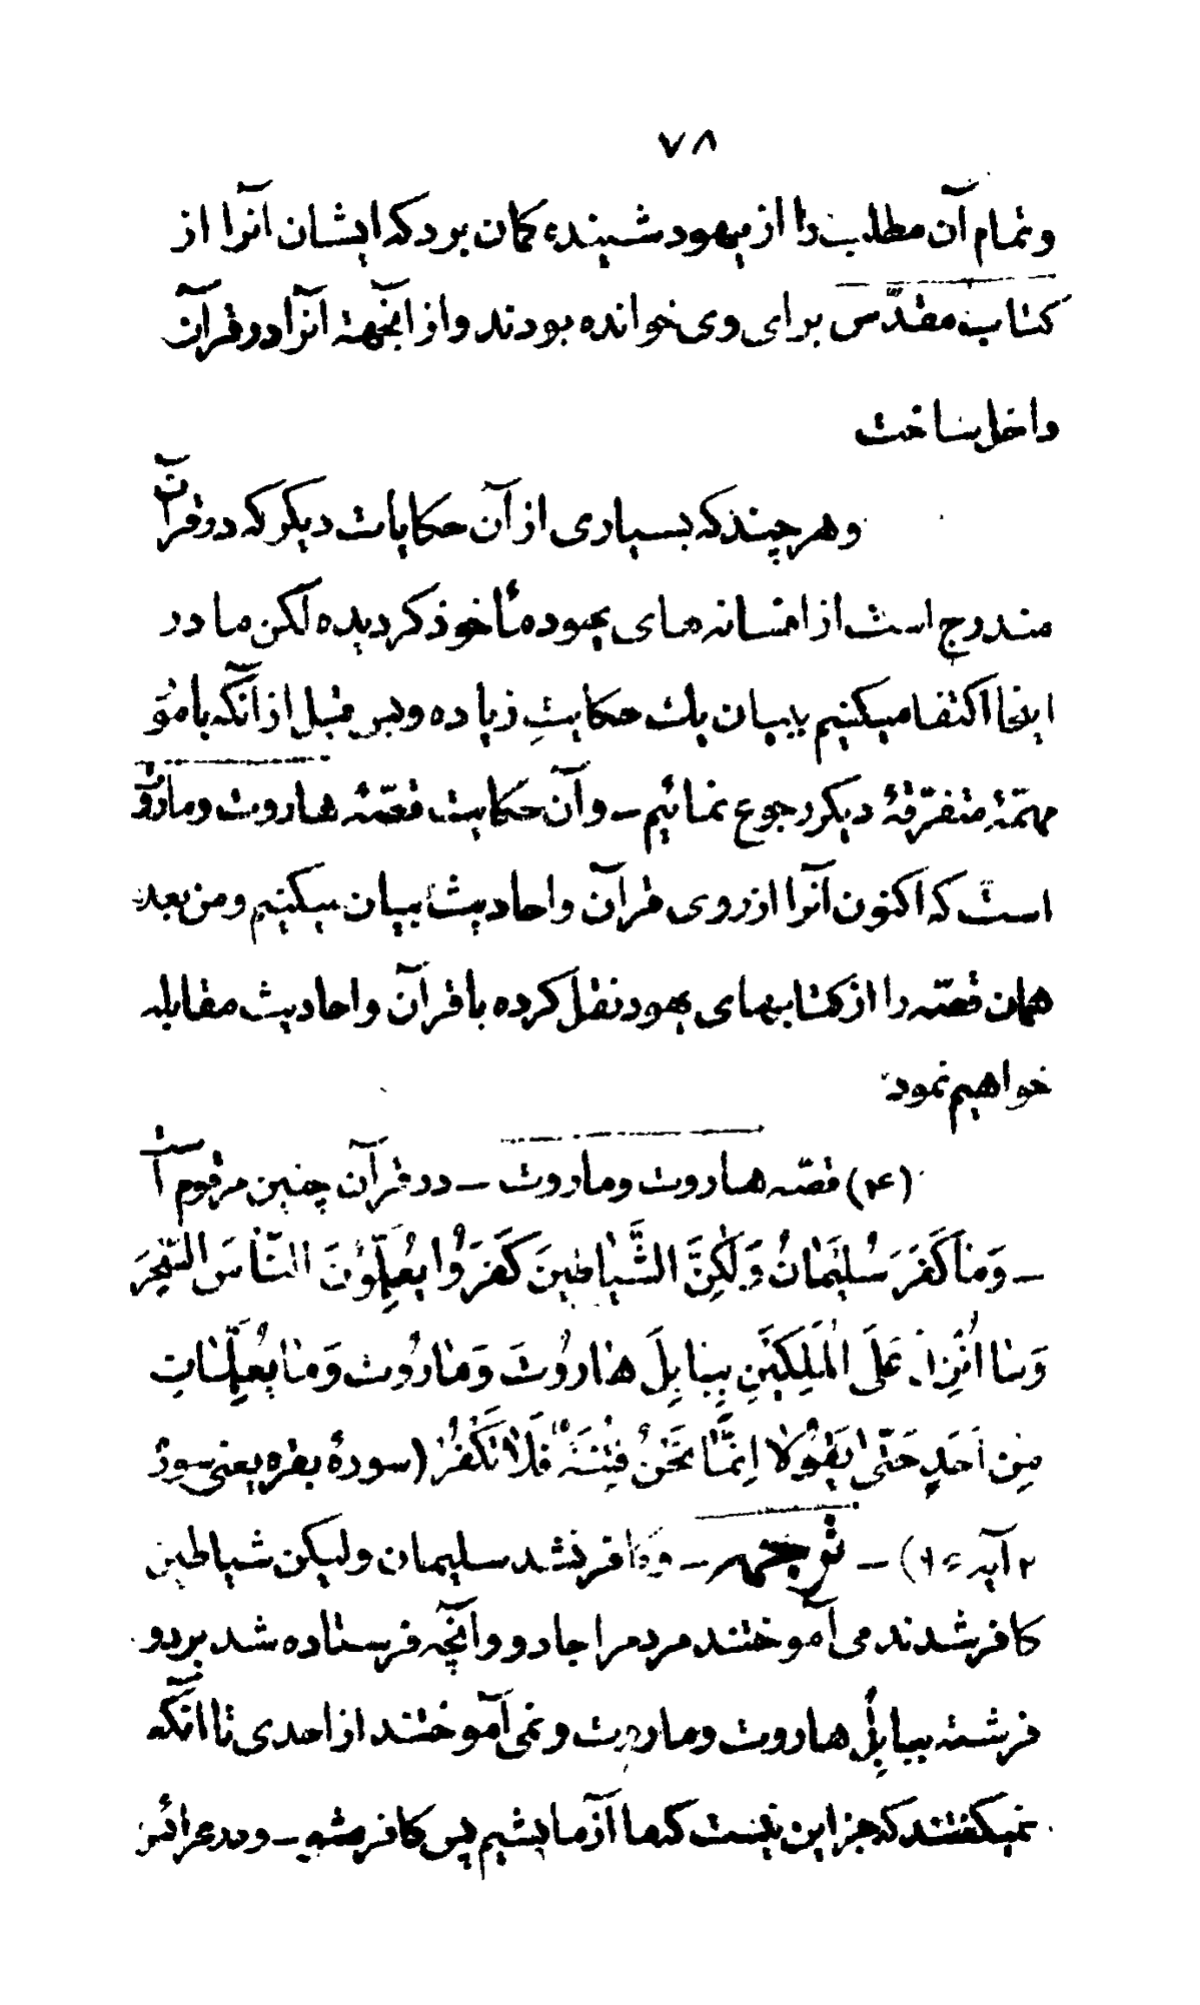 ۷۸
وتمام آن مطلب را از یهود شنیده کمان برد که ایشان آنرا از
کتاب مقدّس برای وی خوانده بودند واز آنجهة آنرا در قرآن
داخل ساخت
وهر چند که بسیاری از آن حکایات دیکر که در قرآن
مندرج است از افسانه های یهود مأخوذ کردیده لکن ما در
اینجا اکتفا میکنیم ببیان یك حکایتِ زیاده وبس قبل از آنکه با مؤ
مهمّهٔ متفرّقهٔ دیکر رجوع نمائیم – وآن حکایت قصّهٔ هاروت وماروت
است که اکنون آنرا از روی قرآن واحادیث بیان میکنیم ومن بعد
همان قصّه را از کتابهای یهود نقل کرده با قرآن واحادیث مقابله
خواهیم نمود
(۴) قصّه هاروت وماروت – در قرآن چنین مرقوم است
– وَمَا كَفَرَ سُلَيْمَانُ وَلَٰكِنَّ الشَّيَاطِينَ كَفَرُوا يُعَلِّمُونَ النَّاسَ السِّحْرَ
وَمَا اُنْزِلَ عَلَى الْمَلَكَيْنِ بِبَابِلَ هَارُوتَ وَمَارُوتَ وَمَا يُعَلِّمَانِ
مِنْ اَحَدٍ حَتَّى يَقُولَا اِنَّمَا نَحْنُ فِتْنَةٌ فَلَا تَكْفُرْ (سورهٔ بقره یعنی سورهٔ
۲ آیه ۹۶) – ترجمه – وکافر نشد سلیمان ولیکن شیاطین
کافر شدند می آموختند مردمرا جادو وآنچه فرستاده شد بر دو
فرشته ببابِل هاروت وماروت ونمی آموختند از احدی تا آنکه
نمیکفتند که جز این نیست که ما آزمایشیم پس کافر مشو – ودر عرائس